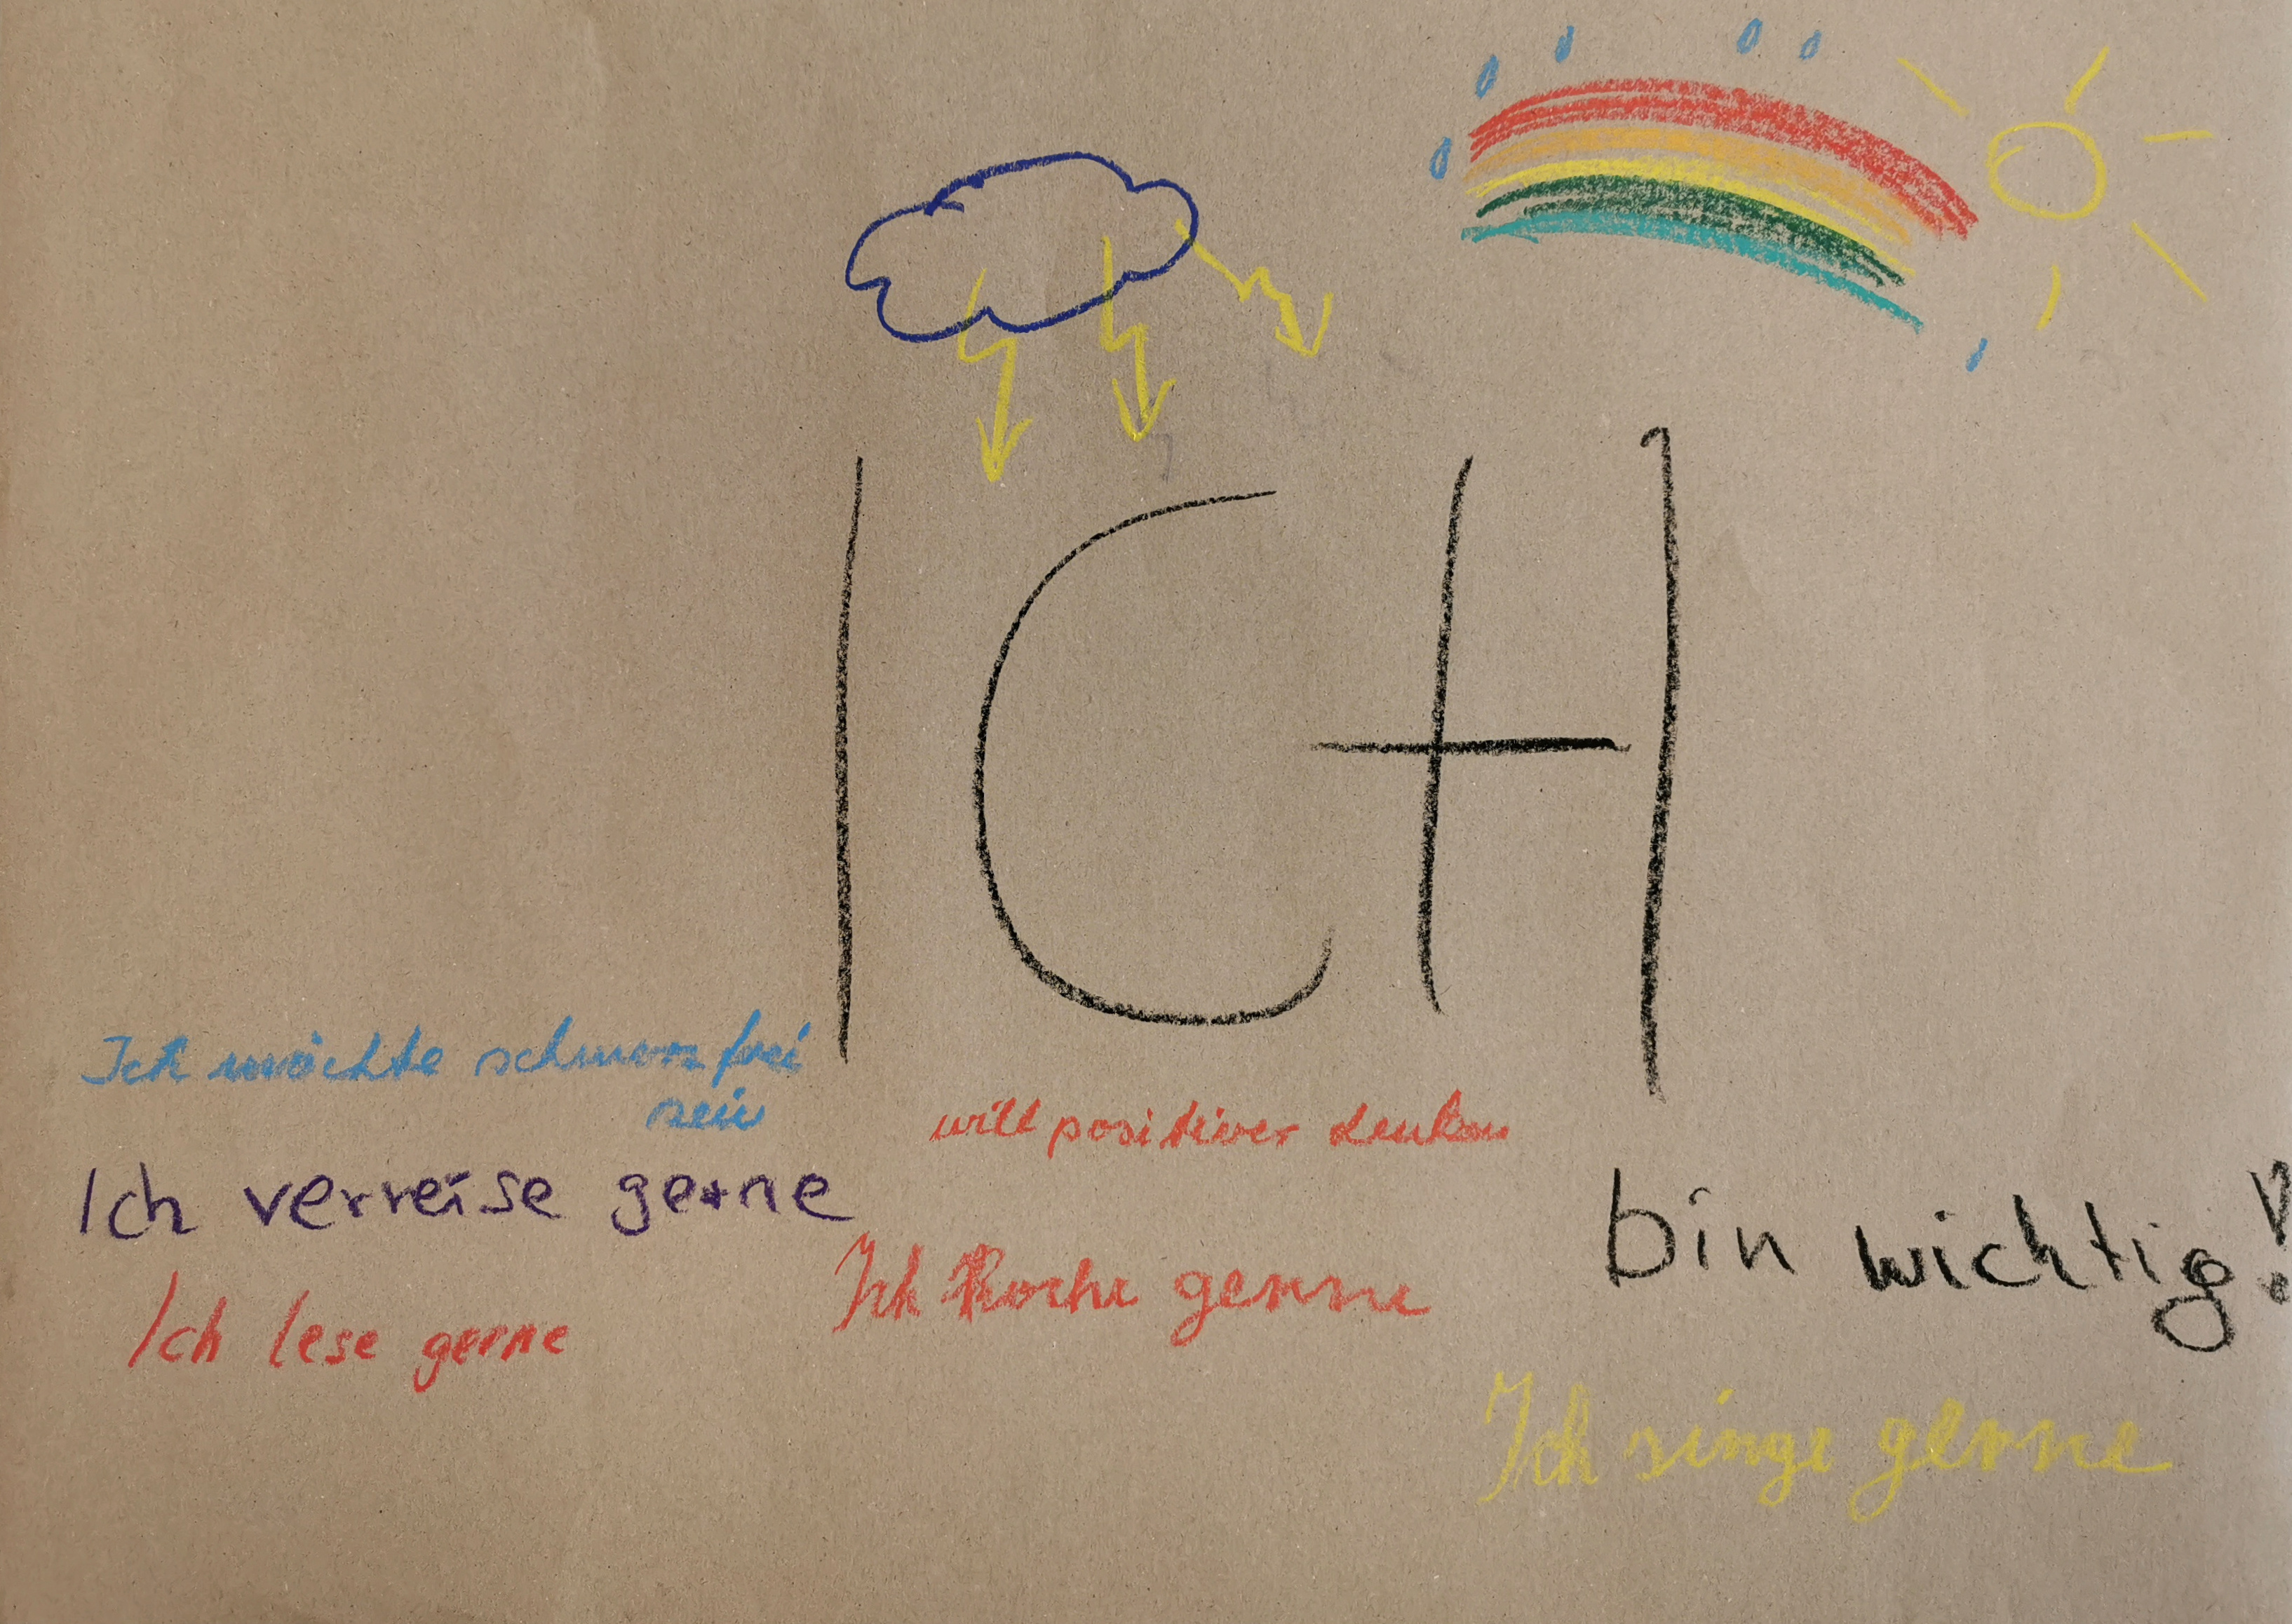 ICH
Ich möchte schmerzfrei
sein
will positiver denken
Ich verreise gerne
bin wichtig!
Ich koche gerne
Ich lese gerne
Ich singe gerne